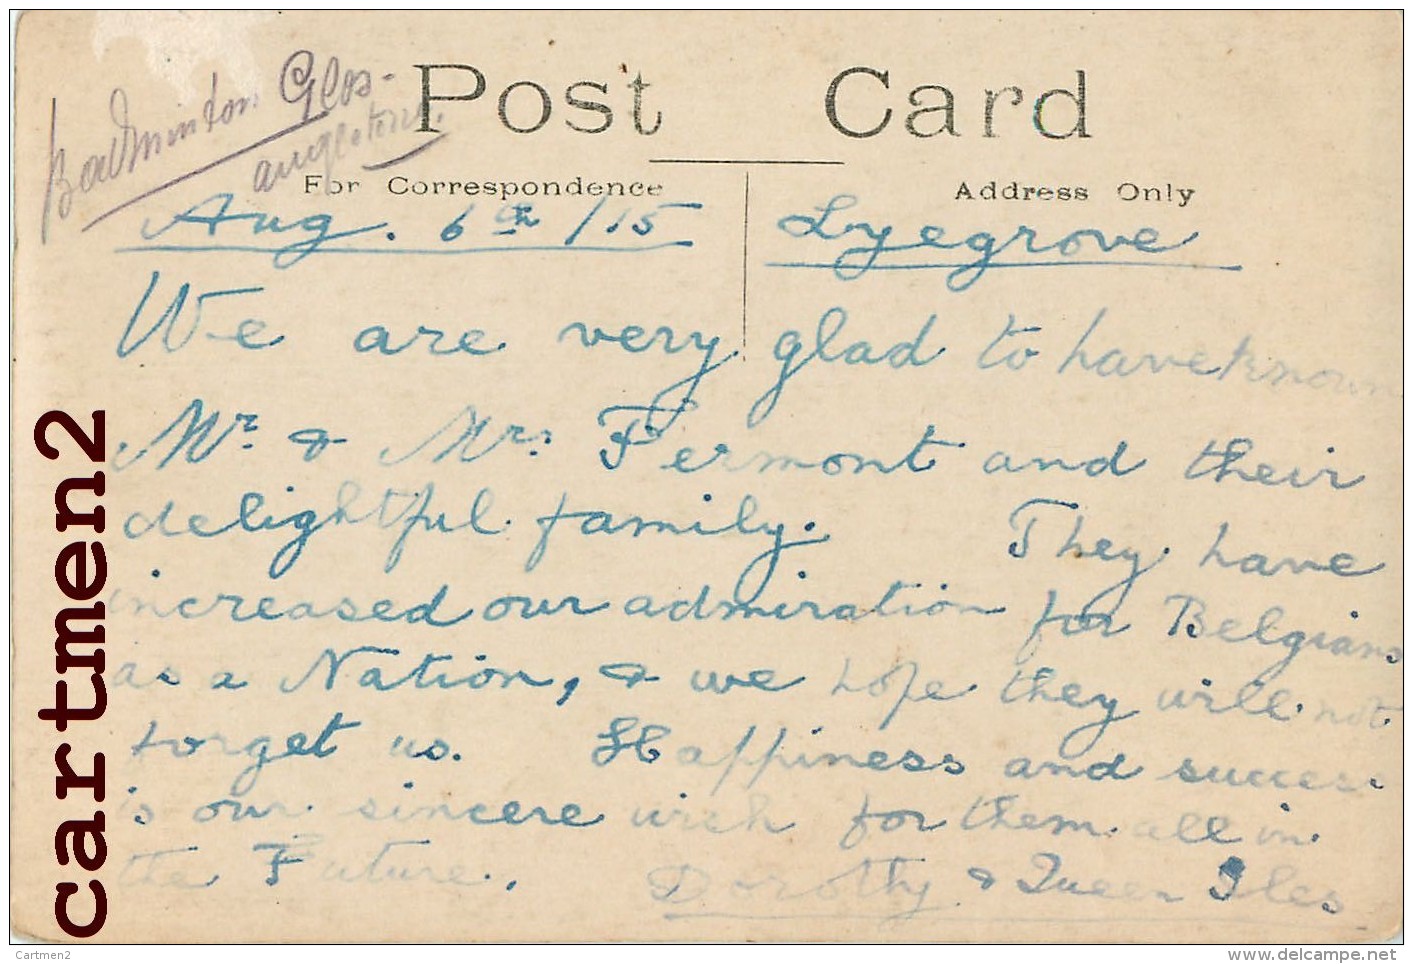 Badminton Glos-
angleterre.
Post Card
For Correspondence
Address Only
Aug. 6th /15
Lyegrove
We are very glad to have known
Mr. & Mrs. Fermont and their
delightful family. They have
increased our admiration for Belgians
as a Nation, & we hope they will not
forget us. Happiness and success
is our sincere wish for them all in
the Future.
Dorothy & Queen Iles
cartmen2
Cartmen2
www.delcampe.net